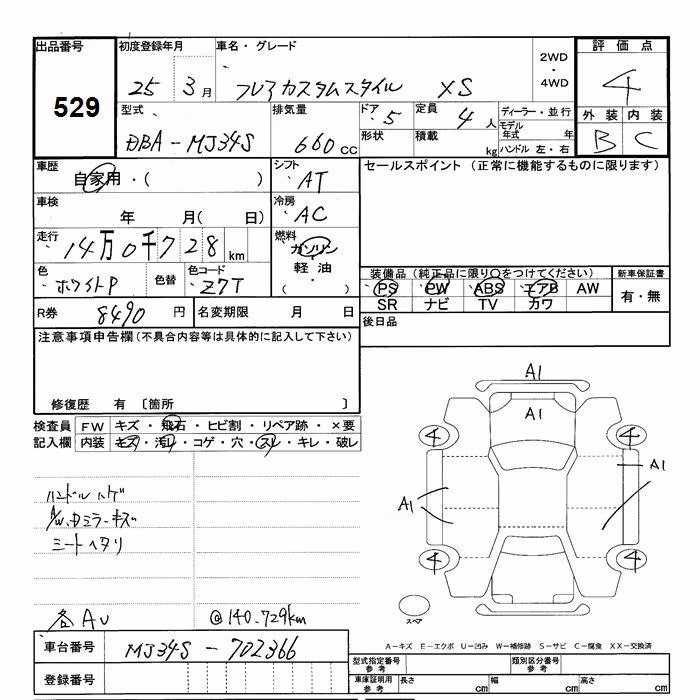 出品番号 初度登録年月 車名・グレード 2WD・4WD 評価点
529 25 3月 フレアカスタムスタイル XS 4
型式 排気量 ドア 5 定員 4人 ディーラー・並行 外装 内装
DBA-MJ34S 660cc 形状 積載 kg モデル年式 年 B C
ハンドル 左・右
車歴 シフト セールスポイント (正常に機能するものに限ります)
自家用・( ) AT
車検 冷房
年 月( 日) AC
走行 燃料
14万0千728km ガソリン
軽油
・
( )
色 色替 色コード 装備品(純正品に限り○をつけてください) 新車保証書
ホワイトP Z7T PS PW ABS エアB AW 有・無
SR ナビ TV カワ
R券 8490円 名変期限 月 日 後日品
注意事項申告欄(不具合内容等は具体的に記入して下さい)
修復歴 有 〔箇所 〕
検査員 FW キズ・飛石・ヒビ割・リペア跡・×要
記入欄 内装 キズ・汚レ・コゲ・穴・スレ・キレ・破レ
A1
A1
4 4
A1
A1
4 4
ハンドルハゲ
A/W、Dミラーキズ
シートヘタリ
スペア
各AU @140.729km
A−キズ E−エクボ U−凹み W−補修跡 S−サビ C−腐食 XX−交換済
車台番号 MJ34S-702366
登録番号
型式指定番号 参考 類別区分番号 参考
車庫証明用 参考 長さ cm 幅 cm 高さ cm